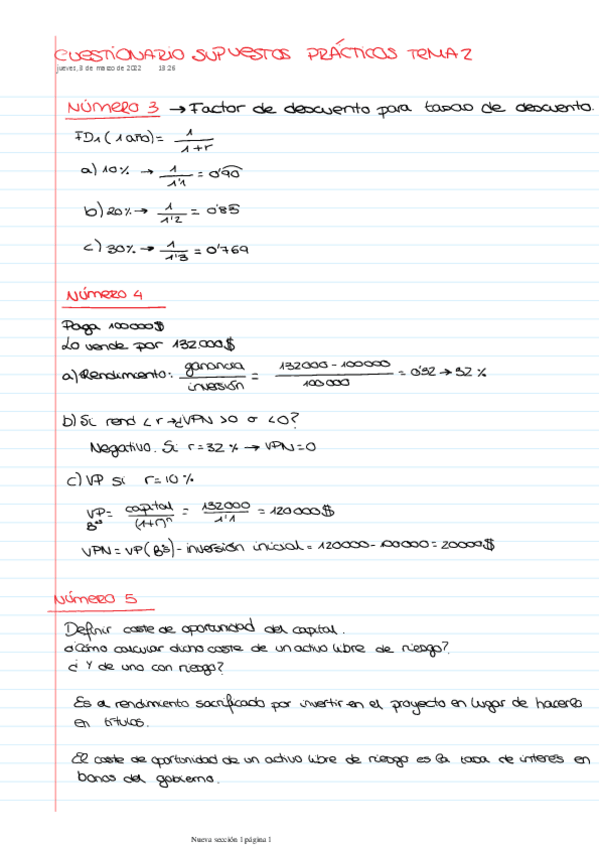 CUESTIONARIO SUPUESTOS PRÁCTICOS TEMA 2
jueves, 3 de marzo de 2022 13:26
NÚMERO 3 → Factor de descuento para tasas de descuento.
FD1 (1 año) = 1 / 1+r
a) 10% → 1 / 1'1 = 0'90
b) 20% → 1 / 1'2 = 0'83
c) 30% → 1 / 1'3 = 0'769
NÚMERO 4
Paga 100000$
Lo vende por 132.000$
a) Rendimiento: ganancia / inversión = 132000 - 100000 / 100000 = 0'32 → 32 %
b) Si rend < r → ¿VPN >0 o <0?
Negativo. Si r = 32 % → VPN = 0
c) VP si r = 10 %
VP Bºs = capital / (1+r)ⁿ = 132000 / 1'1 = 120000$
VPN = VP (Bºs) - inversión inicial = 120000 - 100000 = 20000$
NÚMERO 5
Definir coste de oportunidad del capital.
¿Cómo calcular dicho coste de un activo libre de riesgo?
¿Y de uno con riesgo?
Es el rendimiento sacrificado por invertir en el proyecto en lugar de hacerlo
en títulos.
El coste de oportunidad de un activo libre de riesgo es la tasa de interés en
bonos del gobierno.
Nueva sección 1 página 1